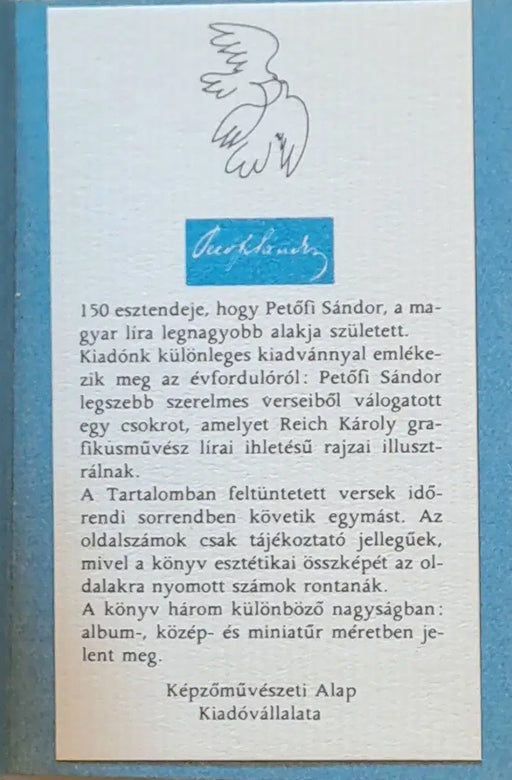 Petőfi Sándor
150 esztendeje, hogy Petőfi Sándor, a ma-
gyar líra legnagyobb alakja született.
Kiadónk különleges kiadvánnyal emléke-
zik meg az évfordulóról: Petőfi Sándor
legszebb szerelmes verseiből válogatott
egy csokrot, amelyet Reich Károly gra-
fikusművész lírai ihletésű rajzai illuszt-
rálnak.
A Tartalomban feltüntetett versek idő-
rendi sorrendben követik egymást. Az
oldalszámok csak tájékoztató jellegűek,
mivel a könyv esztétikai összképét az ol-
dalakra nyomott számok rontanák.
A könyv három különböző nagyságban:
album-, közép- és miniatűr méretben je-
lent meg.
Képzőművészeti Alap
Kiadóvállalata